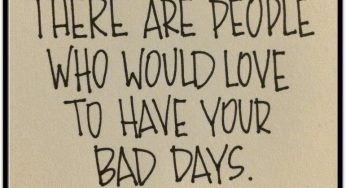 THERE ARE PEOPLE
WHO WOULD LOVE
TO HAVE YOUR
BAD DAYS.